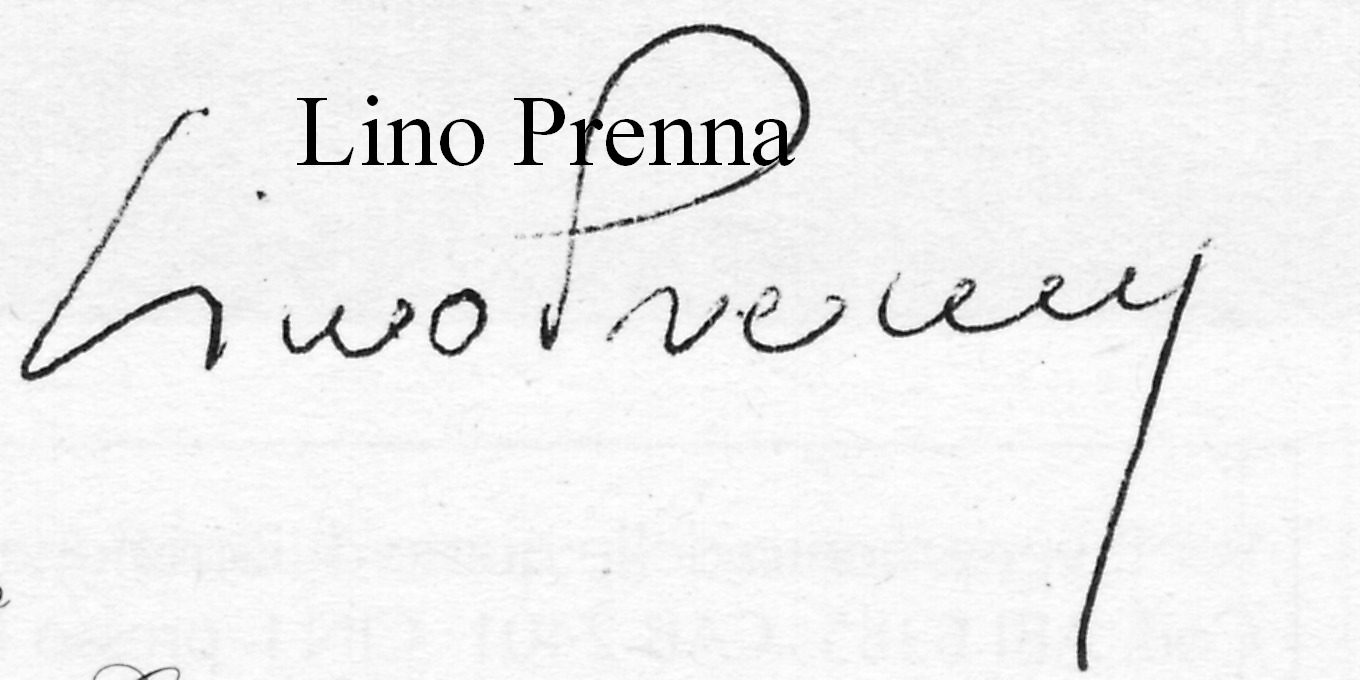 Lino Prenna
Lino Prenna